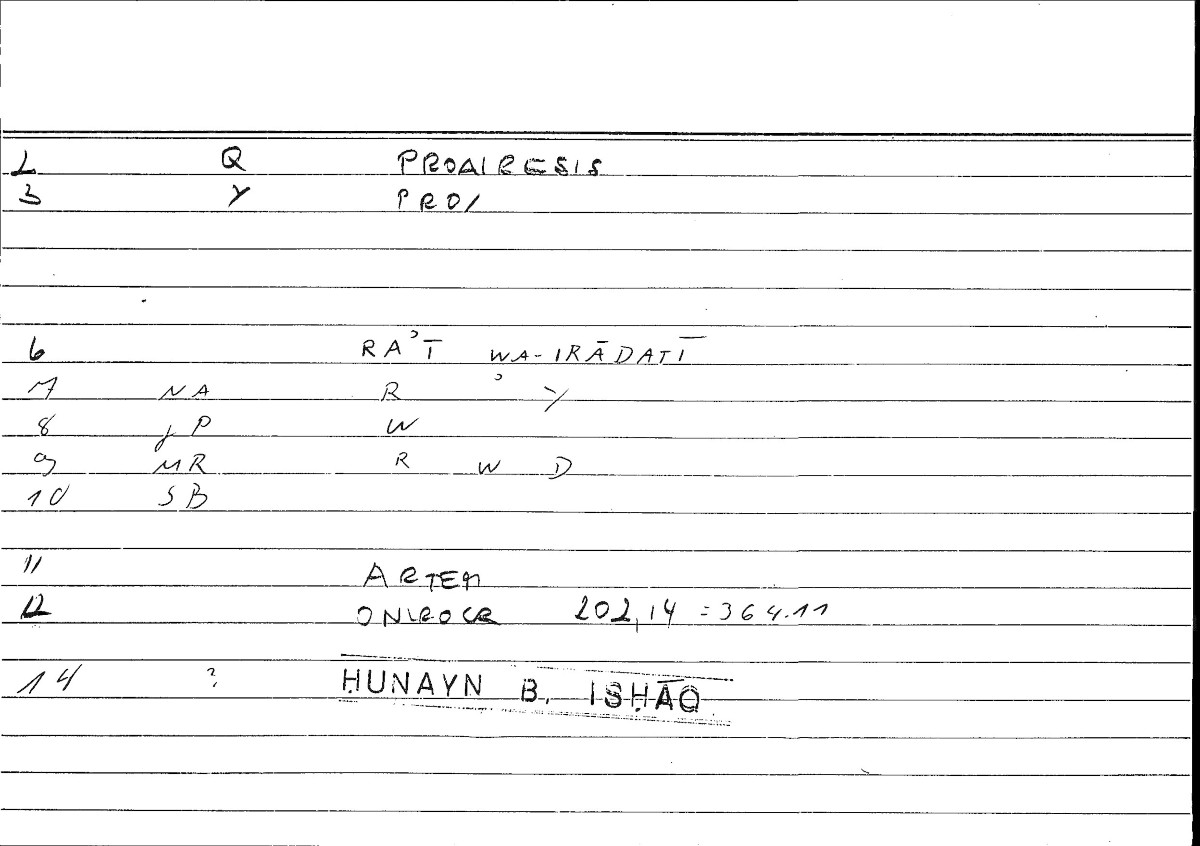 2 Q PROAIRESIS
3 Y PROI
6 RAʾT WA-IRĀDATĪ
7 NA R ʾ Y
8 jP W
9 MR R W D
10 SB
11 ARTEM
12 ONIROCR 202,14 = 364.11
14 ? ḤUNAYN B. ISḤĀQ